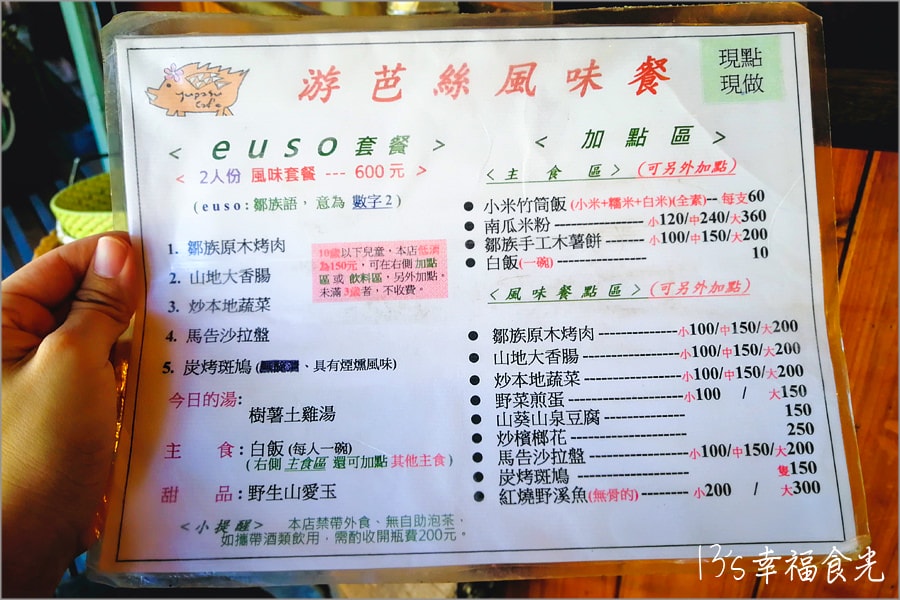 yupasu
Cafe
游芭絲風味餐
現點
現做
< euso套餐 >
< 2人份 風味套餐 --- 600元 >
(euso:鄒族語,意為 數字2)
1. 鄒族原木烤肉
2. 山地大香腸
3. 炒本地蔬菜
4. 馬告沙拉盤
5. 炭烤斑鳩(、具有煙燻風味)
10歲以下兒童,本店低消
為150元,可在右側 加點
區 或 飲料區,另外加點。
未滿 3歲者,不收費。
今日的湯:
樹薯土雞湯
主 食:白飯(每人一碗)
(右側 主食區 還可加點 其他主食)
甜 品:野生山愛玉
<小提醒> 本店禁帶外食、無自助泡茶,
如攜帶酒類飲用,需酌收開瓶費200元。
< 加點區 >
<主食區>(可另外加點)
● 小米竹筒飯(小米+糯米+白米)(全素)-- 每支60
● 南瓜米粉 ---------------- 小120/中240/大360
● 鄒族手工木薯餅 ------- 小100/中150/大200
● 白飯(一碗) ---------------- 10
<風味餐點區>(可另外加點)
● 鄒族原木烤肉 --------------- 小100/中150/大200
● 山地大香腸 ----------------- 小100/中150/大200
● 炒本地蔬菜 ----------------- 小100/中150/大200
● 野菜煎蛋 -------------------- 小100 / 大150
● 山葵山泉豆腐 --------------- 150
● 炒檳榔花 -------------------- 250
● 馬告沙拉盤 ----------------- 小100/中150/大200
● 炭烤斑鳩 ------------------- 隻150
● 紅燒野溪魚(無骨的) --------- 小200 / 大300
13's幸福食光